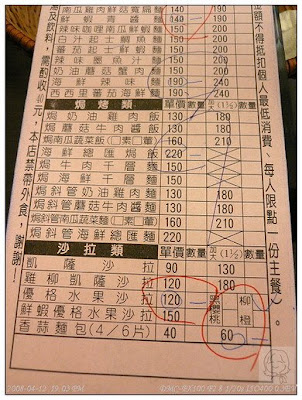 南瓜雞肉鮮貝寬扁麵 140 190
鮮蝦青醬 140 190
辣味咖哩南瓜鮮蝦 150 200
汁起士鯛魚 150 200
蕃茄起士鮮蝦 150 200
辣味墨魚汁 150 200
奶油蘑菇蟹肉 150 200
鮮辣 190 240
西西里蕃茄海鮮 190 240
焗烤類 單價 數量 加大(1½) 數量
焗奶油雞肉飯 130 180
焗蘑菇牛肉醬飯 130 180
焗南瓜蔬菜飯(□素□葷) 160 210
焗海鮮總匯焗飯 220
焗牛肉千層麵 150
焗海鮮千層麵 150
焗斜管奶油雞肉麵 130 180
焗斜管蘑菇牛肉醬麵 130 180
焗斜管南瓜蔬菜麵(□素□葷) 160 210
焗斜管海鮮總匯麵 220
沙拉類 單價 數量 加大(1½) 數量
凱薩沙拉 90 130
雞柳凱薩沙拉 120 180
優格水果沙拉 120
鮮蝦優格水果沙拉 150
香蒜麵包(4/6片) 40 60
櫻桃
柳橙
及飲料，需酌收
元，本店禁帶外食，謝謝!
金額不得抵扣個人最低消費、每人限點一份主餐)。
2008-04-12 19:03